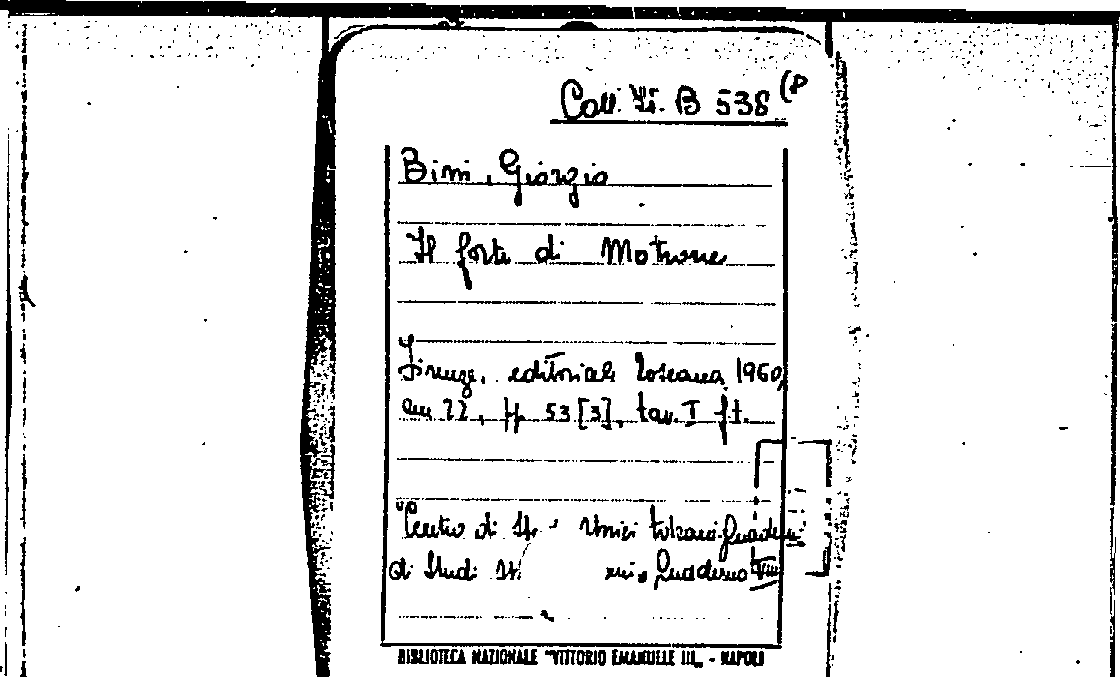 Coll. It. B 538 (8
Bini, Giorgio
Il forte di Motrone
Firenze, editoriale toscana, 1960,
cm 22, pp 53 [3], tav. I ft.
Centro di St storici toscani. Quaderni
di Studi St Quaderno VIII
BIBLIOTECA NAZIONALE "VITTORIO EMANUELE III„ - NAPOLI